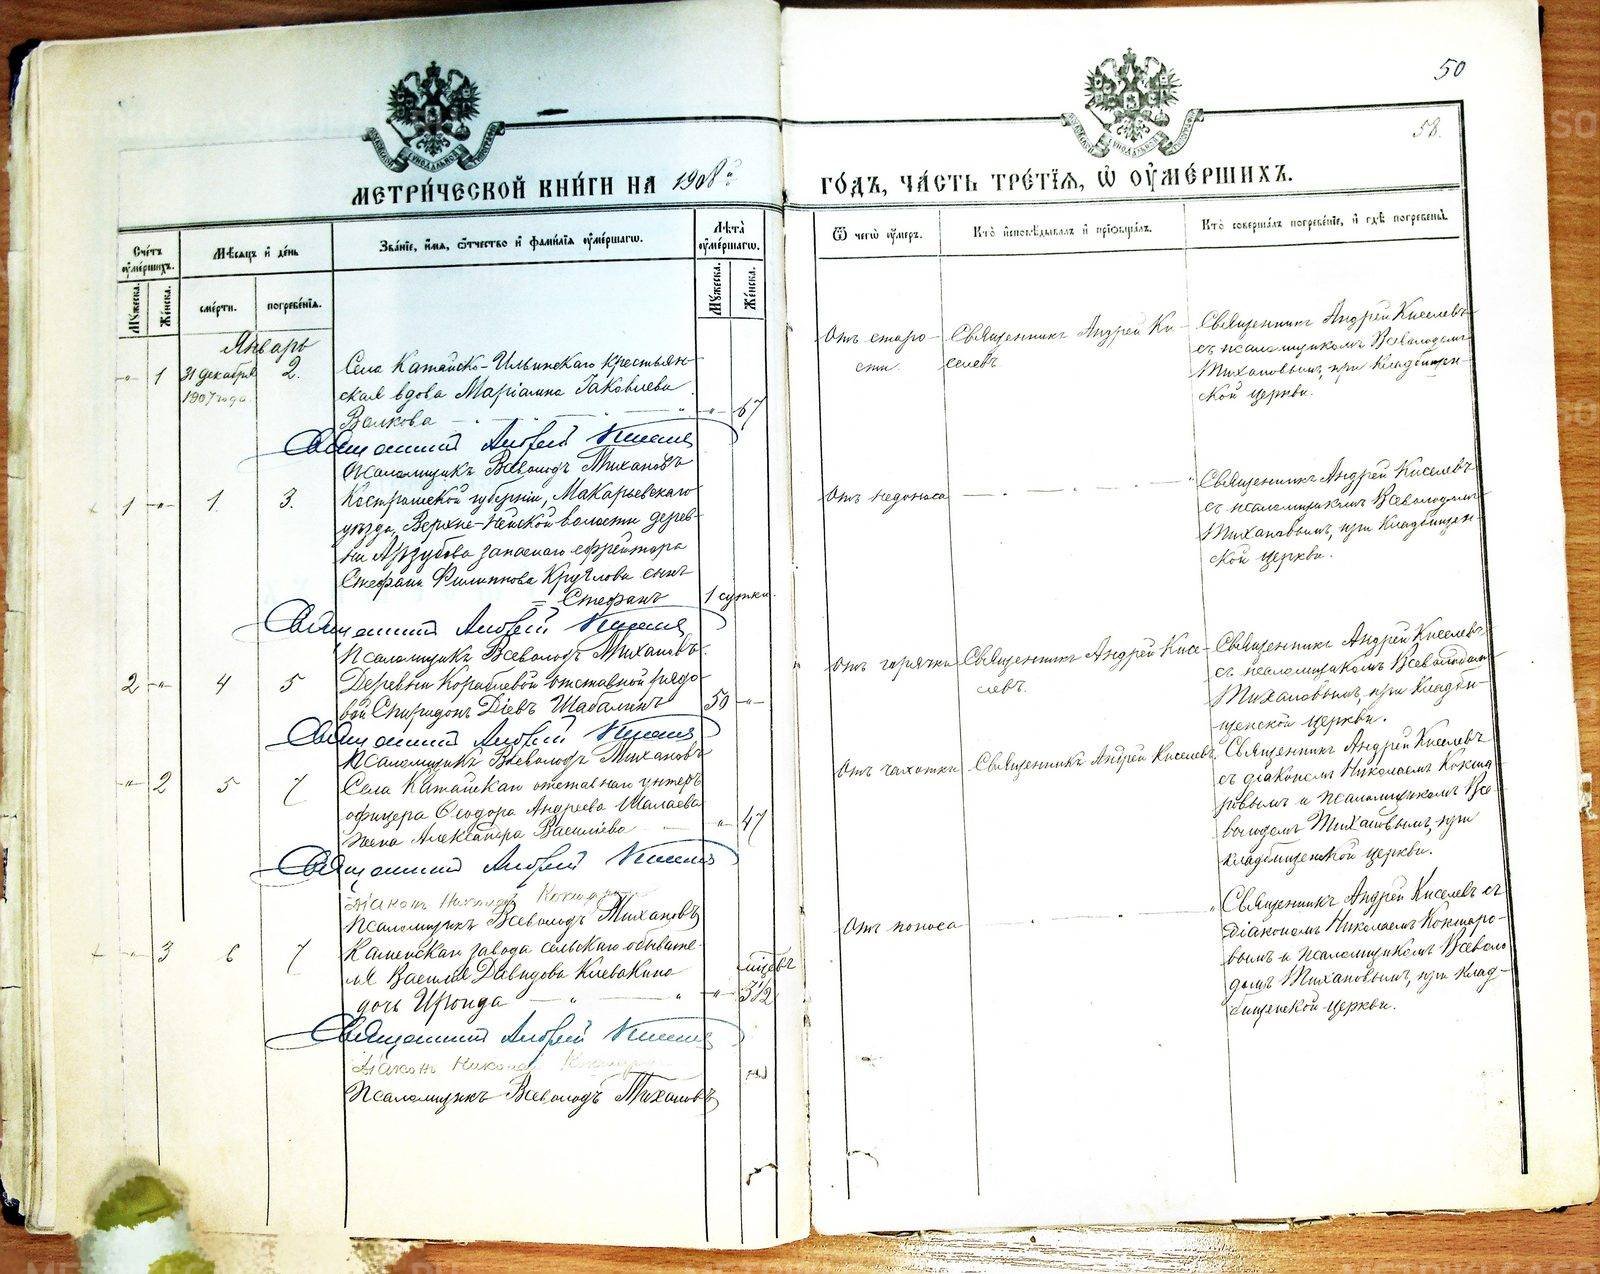 50
58.
МЕТРИ́ЧЕСКОЙ КНИ́ГИ НА 1908й
ГО́ДЪ, ЧА́СТЬ ТРЕ́ТІЯ, Ѡ ОУ҆МЕ́РШИХЪ.
Сче́тъ оу҆ме́ршихъ.
Мѣсяцъ и де́нь
Зва́ніе, и́мя, о́тчество и фами́лія оу҆ме́ршагѡ.
Лѣта̀ оу҆ме́ршагѡ.
Мꙋ́жеска.
Же́нска.
сме́рти.
погребе́нія.
Мꙋ́жеска.
Же́нска.
Ѿ чегѡ̀ оу҆́меръ.
Кто̀ и҆сповѣ́дывалъ и҆ прїѡбща́лъ.
Кто̀ соверша́лъ погребе́ніе, и҆ гдѣ̀ погребены̀.
Январь
-„- 1 31 декабря 2.
1907 года.
Села Катайско-Ильинскаго крестьян-
ская вдова Маріамна Іаковлева
Волкова -„- 67
Священникъ Андрей Киселевъ
Псаломщикъ Всеволодъ Тихановъ
Отъ старо-
сти.
Священникъ Андрей Ки-
селевъ
Священникъ Андрей Киселевъ
съ псаломщикомъ Всеволодомъ
Тихановымъ, при Кладбищен-
ской церкви.
1 -„- 1. 3.
Костромской губерніи, Макарьевскаго
уѣзда, Верхне-Нейской волости дерев-
ни запаснаго ефрейтора
Стефана Филиппова Круглова сынъ
Стефанъ 1 сутки.
Священникъ Андрей Киселевъ
Псаломщикъ Всеволодъ Тихановъ.
Отъ недоноса
Священникъ Андрей Киселевъ
съ псаломщикомъ Всеволодомъ
Тихановымъ, при Кладбищен-
ской церкви.
2 -„- 4 5
Деревни Кораблевой отставной рядо-
вой Спиридонъ Діевъ Шабалинъ 50 -„-
Священникъ Андрей Киселевъ
Псаломщикъ Всеволодъ Тихановъ
Отъ горячки
Священникъ Андрей Кисе-
левъ.
Священникъ Андрей Киселевъ
съ псаломщикомъ Всеволодомъ
Тихановымъ, при Кладби-
щенской церкви.
-„- 2 5 7
Села Катайскаго отставнаго унтеръ
офицера Ѳеодора Андреева Шалаева
жена Александра Василіева -„- 47
Священникъ Андрей Киселевъ
Діаконъ Николай
Псаломщикъ Всеволодъ Тихановъ
Отъ чахотки
Священникъ Андрей Киселевъ
Священникъ Андрей Киселевъ
съ діакономъ Николаемъ Кокша
ровымъ и псаломщикомъ Все-
володомъ Тихановымъ, при
кладбищенской церкви.
-„- 3 6 7
Каменскаго завода сельскаго обывате-
ля Василія Давидова Клевакина
дочь Ираида -„- мѣсяцевъ 3 1/2
Священникъ Андрей Киселевъ
Діаконъ Николай
Псаломщикъ Всеволодъ Тихановъ
Отъ поноса
Священникъ Андрей Киселевъ съ
діакономъ Николаемъ Кокшаро-
вымъ и псаломщикомъ Всеволо
домъ Тихановымъ, при клад-
бищенской церкви.